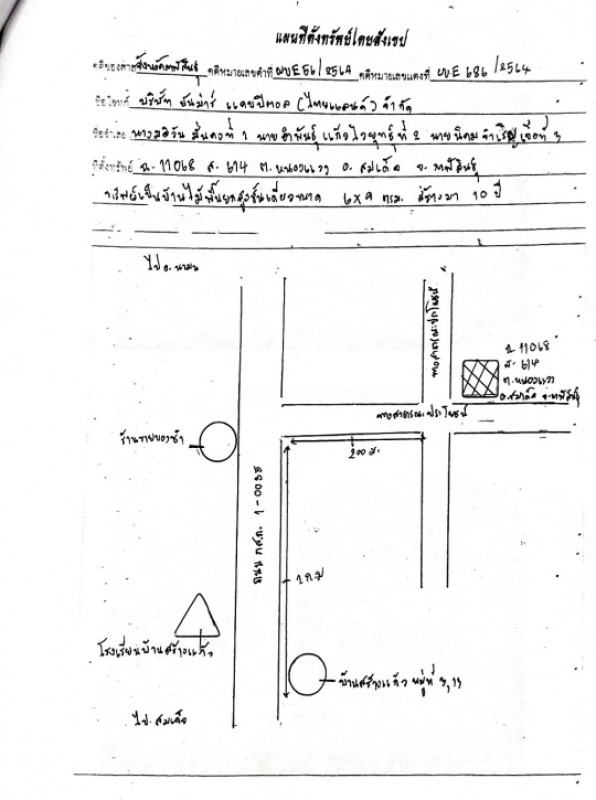 แผนที่ตั้งทรัพย์โดยสังเขป
คดีของศาลจังหวัดกาฬสินธุ์ คดีหมายเลขดำที่ ผบE56/2564 คดีหมายเลขแดงที่ ผบE 686 /2564
ชื่อโจทก์ บริษัท ยันม่าร์ แคปปิตอล (ไทยแลนด์) จำกัด
ชื่อจำเลย ที่ 1 นาย ที่ 2 นายนิคม จำเริญ ที่ 3
ที่ตั้งทรัพย์ ฉ.11068 ส. 614 ต.หนองแวง อ. สมเด็จ จ. กาฬสินธุ์
ทรัพย์เป็นบ้านไม้พื้นยกสูงชั้นเดียวขนาด 6x9 ตรม. สร้างมา 10 ปี
ไป อ. นามน
ทางสาธารณะประโยชน์
ฉ. 11068
ส. 614
ต.หนองแวง
อ.สมเด็จ จ.กาฬสินธุ์
ทางสาธารณะประโยชน์
ร้านขายของชำ
200 ม.
ถนน กส.ถ. 1-0033
1 กม
โรงเรียนบ้านสร้างแก้ว
บ้านสร้างแก้ว หมู่ที่ 3, 13
ไป. สมเด็จ